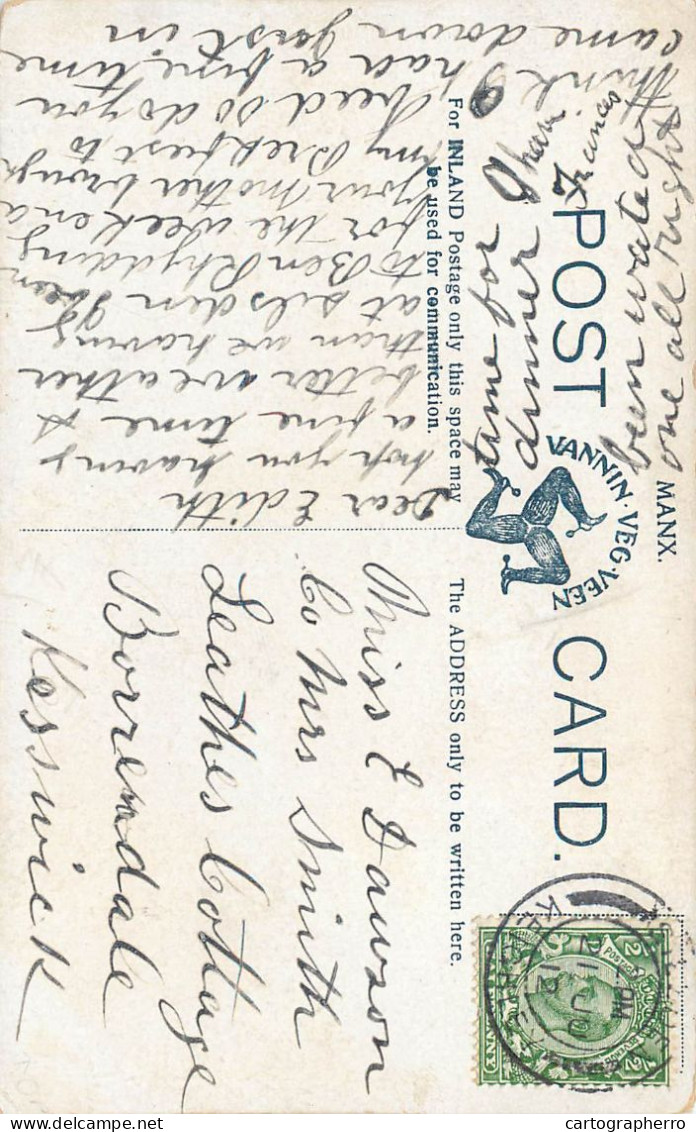 MANX.
POST CARD.
VANNIN·VEG·VEEN
For INLAND Postage only this space may
be used for communication.
The ADDRESS only to be written here.
Dear Edith
hop you having
a fine time &
better weather
than we having
at silsden been
to Ben Rhydding
for the week end
your mother
my Brekfest to
bed so do you
think I had a fine time
came down just in
time for
dinner
I have
been
one all right
Frances
Miss E Dawson
Co Mrs Smith
Leathes Cottage
Borrendale
Kesswick
KEIGHLEY
PM
21 JU
12
POSTAGE
cartographerro.com